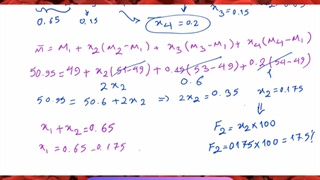 0.65 0.15 x₄=0.2 x₃=0.15
m̄ = M₁ + x₂(M₂-M₁) + x₃(M₃-M₁) + x₄(M₄-M₁)
50.95=49 + x₂(51-49) + 0.15(53-49) + 0.2(54-49)
2x₂ 0.6
50.95 = 50.6+2x₂ ⇒ 2x₂ = 0.35 x₂=0.175
⇓
x₁+x₂=0.65 F₂=x₂×100
x₁=0.65-0.175 F₂=0.175×100=17.5%